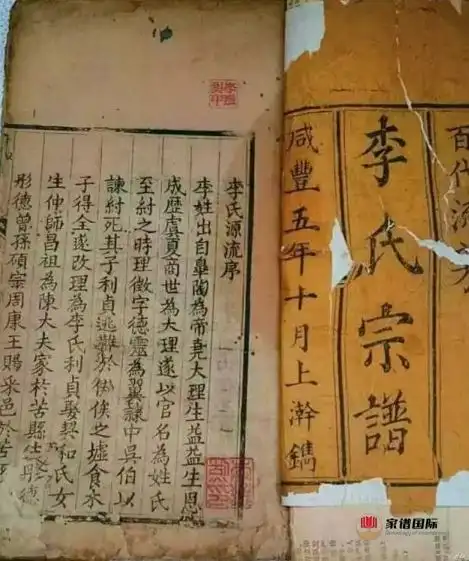 百代流
李氏宗譜
咸豐五年十月上澣鐫
李氏源流序
李姓出自臯陶為帝堯大理生益益生恩
成歷虞夏商世為大理遂以官名為姓氏
至紂之時理徵字德靈為翼隸中吳伯以
諫紂死其子利貞逃難於侯之墟食木
子得全遂改理為李氏利貞娶契和氏女
生仲師昌祖為陳大夫家於苦縣生彤德
彤德曾孫碩宗周康王賜采邑於苦
家谱国际